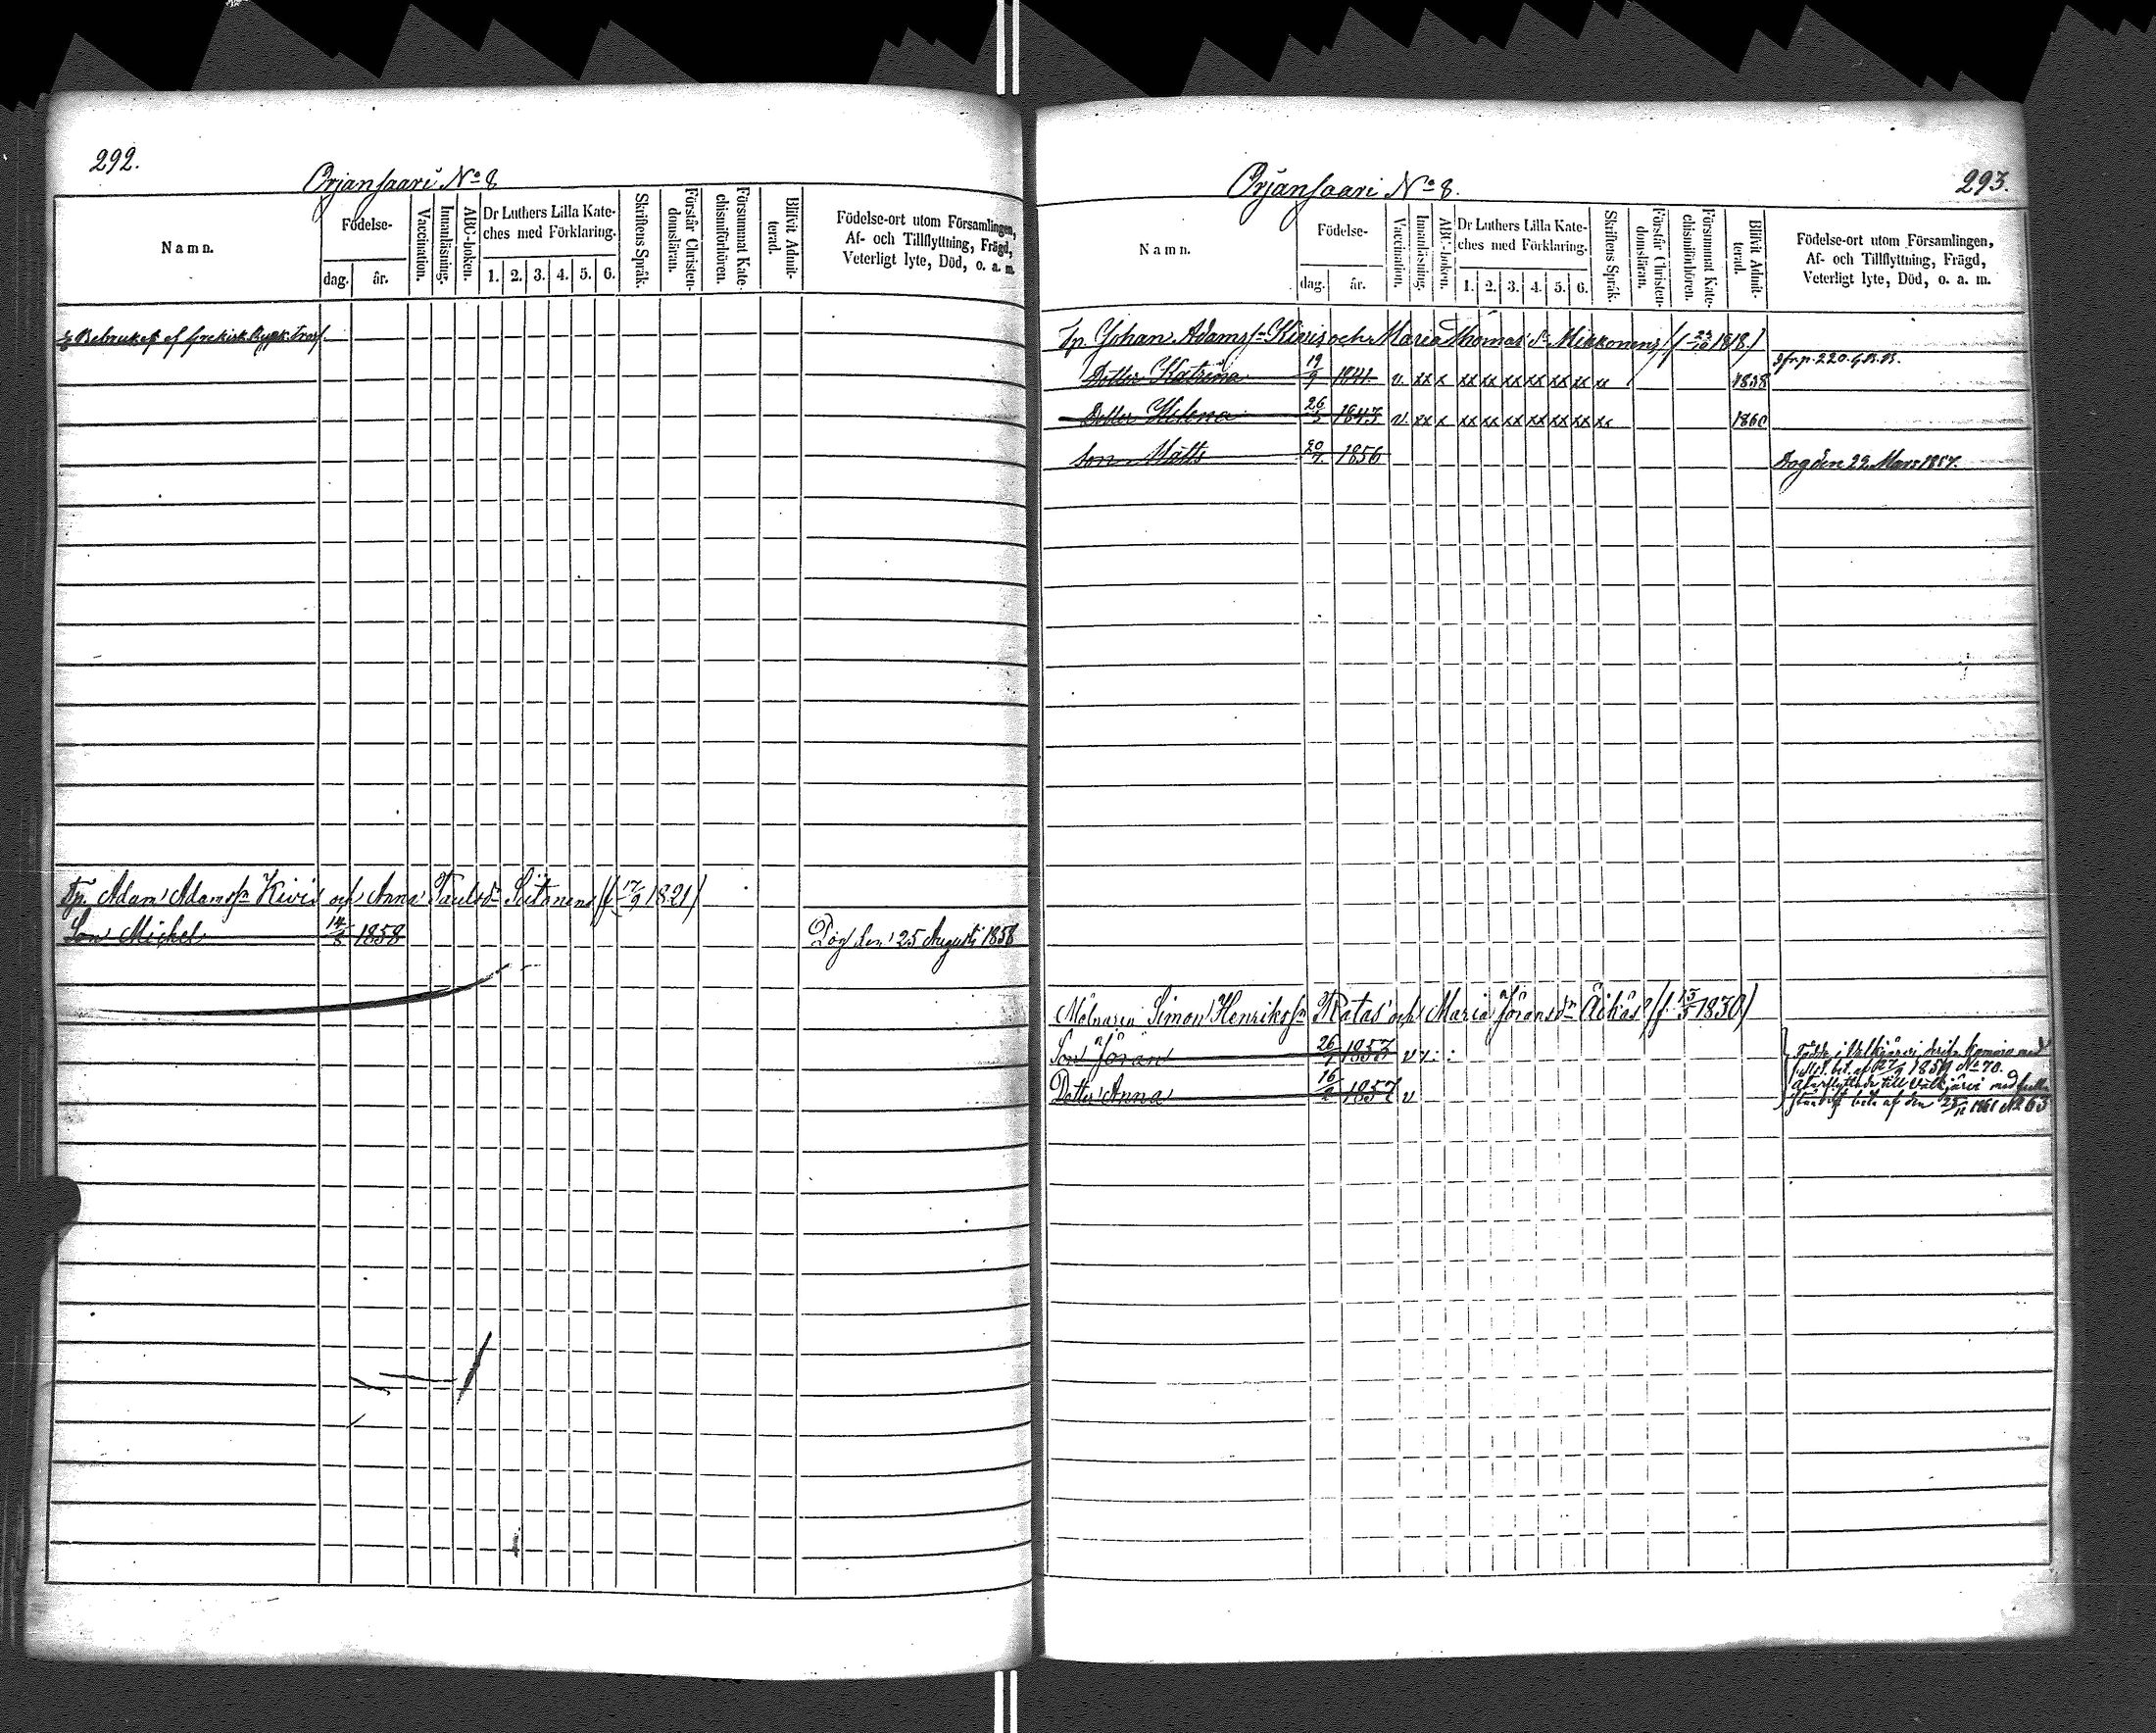 292.
Orjansaari No 8
Namn.
Födelse-
dag.
år.
Vaccination.
Innanläsning.
ABC-boken.
Dr Luthers Lilla Kate-
ches med Förklaring.
1. 2. 3. 4. 5. 6.
Skriftens Språk.
Förstår Christen-
domsläran.
Försummat Kate-
chismiförhören.
Blifvit Admit-
terad.
Födelse-ort utom Församlingen,
Af- och Tillflyttning, Frägd,
Veterligt lyte, Död, o. a. m.
Tp. Adam Adamss: Kivis och Anna Paulsdr Siitonens /f. 17/9 1821/
Son Michel 14/8 1858 Dog den 25 Augusti 1858
Orjansaari No 8.
293.
Namn.
Födelse-
dag.
år.
Vaccination.
Innanläsning.
ABC-boken.
Dr Luthers Lilla Kate-
ches med Förklaring.
1. 2. 3. 4. 5. 6.
Skriftens Språk.
Förstår Christen-
domsläran.
Försummat Kate-
chismiförhören.
Blifvit Admit-
terad.
Födelse-ort utom Församlingen,
Af- och Tillflyttning, Frägd,
Veterligt lyte, Död, o. a. m.
Tp. Johan Adamss: Kivis och Maria Thomas dr Mikkonens /f. 1818/
Dotter Katrina 19/9 1841. v. xx x xx xx xx xx xx xx x 1858 p. 220.
Dotter Helena 26 1843 v. xx x xx xx xx xx xx xx xx 1860
Son Matts 20 1856 Dog den 22 Mars 1857.
Simon Henrikss: Ratas och Maria Jöransdr Äikäs /f. 1830/
Son Jöran 26 1853 v
Dotter Anna 16 1857 v
Födde i Walkjärvi med
1859 No 70.
till Walkjärvi med
af den 1861 No 63